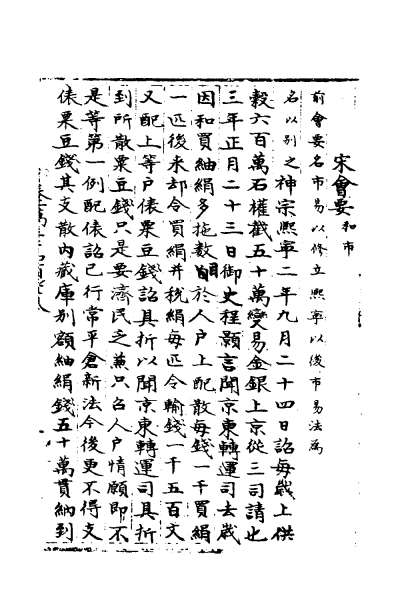 宋會要 和市
前會要名市易以修立熙寧以後市易法為
名以別之神宗熙寧二年九月二十四日詔每歲上供
穀六百萬石權截五十萬變易金銀上京從三司請也
三年正月二十三日御史程顥言聞京東轉運司去歲
因和買紬絹多拖數於人戶上配散每錢一千買絹
一匹後來却令買絹并稅絹每匹令輸錢一千五百文
又配上等戶俵粟豆錢詔具折以聞京東轉運司具折
到所散粟豆錢只是要濟民乏兼只召人戶情願即不
是等第一例配俵詔已行常平倉新法今後更不得支
俵粟豆錢其支散內藏庫別額紬絹錢五十萬貫納到